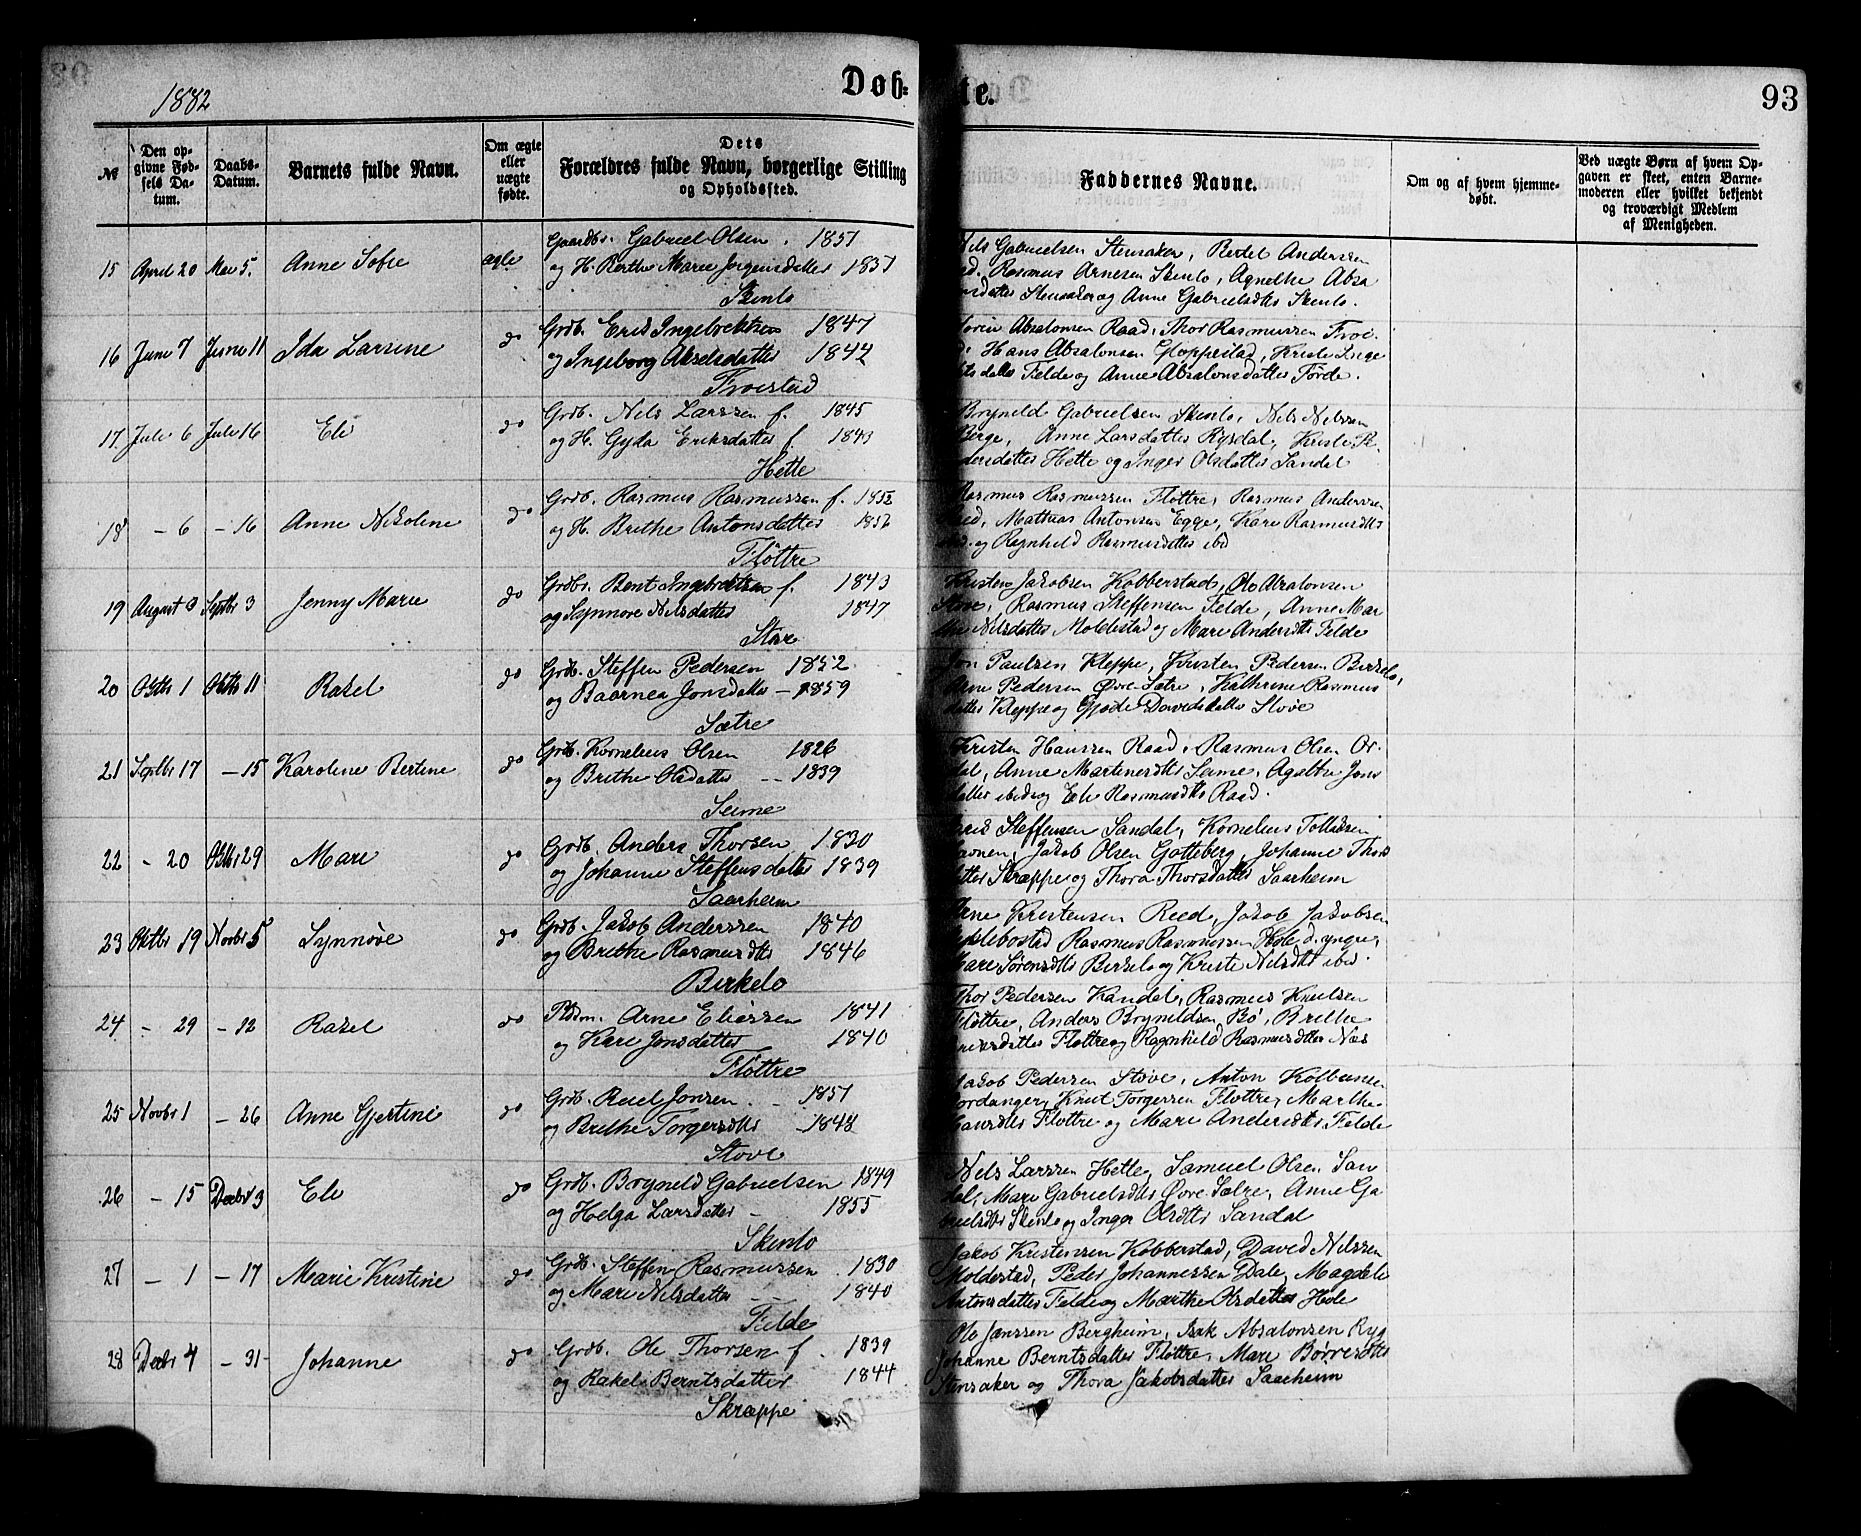 1882
Døb= te.
93
№
Den opgivne Fødsels Datum.
Daabs-Datum.
Barnets fulde Navn.
Om ægte eller uægte fødte.
Dets Forældres fulde Navn, borgerlige Stilling og Opholdssted.
Faddernes Navne.
Om og af hvem hjemmedøbt.
Ved uægte Børn af hvem Opgaven er skeet, enten Barnemoderen eller hvilket bekjendt og troværdigt Medlem af Menigheden.
15 April 20 Mai 5. Anne Sofie ægte
Gaardbr. Gabriel Olsen. 1851
og H. Berthe Marie Jørgensdatter 1851
Skinlo
Nils Gabrielsen Stensaker, Bertel Anderssen
Rasmus Arnesen Skinlo, Agnethe Absa
datter Stensaker og Anne Gabrielsdtr Skinlo.
16 Juni 7 Juni 11 Ida Larsine do
Grdb. Erik Ingebrektsen 1847
og Ingeborg Akselsdatter 1842
Froistad
Absalonsen Raad, Thor Rasmussen Froi
Hans Absalonsen Gloppestad, Kristi Inge
datter Felde og Anne Absalonsdatter Førde.
17 Juli 6 Juli 16 Eli do
Grdb. Nils Larssen f. 1845
og H. Gyda Eriksdatter f. 1843
Hette
Brynild Gabrielsen Skinlo, Nils Nilssen
Berge, Anne Larsdatter Rysdal, Kristi
datter Hette og Inger Olsdatter Sandal
18 - 6 - 16 Anne Nikoline do
Grdb. Rasmus Rasmussen f. 1852
og H. Brithe Antonsdatter 1852
Fløttre
Rasmus Rasmussen Fløttre, Rasmus Anderssen
Reed, Mathias Antonsen Egge, Kari Rasmusdtr
og Ragnhild Rasmusdatter ibd
19 August 3 Septbr 3 Jenny Marie do
Grdbr. Bent Ingebretsen f. 1843
og Synnøve Nilsdatter 1847
Støve
Kristen Jakobsen Kobberstad, Ole Absalonsen
Støve, Rasmus Steffensen Felde, Anne Mar
the Nilsdatter Moldestad og Mari Andersdtr Felde
20 Oktbr 1 Oktbr 11 Rakel do
Grdb. Steffen Pedersen 1852
og Baarnea Jonsdatter - 1859
Sætre
Jon Paulsen Kleppe, Kristen Pedersen Birkelo,
Arne Pedersen Øvre-Sætre, Kathrine Rasmus
datter Kleppe og Gjøde Davidsdatter Støve
21 Septbr 17 - 15 Karoline Bertine do
Grdb. Kornelius Olsen 1826
og Brithe Olsdatter - - 1839
Seime
Kristen Hanssen Raad, Rasmus Olsen Or-
dal, Anne Martinusdtr Seime, Agathe Jons
datter ibid og Eli Rasmusdtr Raad.
22 - 20 Oktbr 29 Mari do
Grdb. Anders Thorsen 1830
og Johanne Steffensdatter 1839
Saarheim
Steffensen Sandal, Kornelius Tollaksen
Jakob Olsen Gotteberg, Johanne Thors
datter Skræppe og Thora Thorsdatter Saarheim
23 Oktbr 19 Novbr 5 Synnøve do
Grdb. Jakob Anderssen 1840
og Brithe Rasmusdtr 1846
Birkelo
Arne Kristensen Reed, Jakob Jakobsen
Myklebostad Rasmus Rasmussen Hole d. yngre,
Mari Sørensdtr Birkelo og Kristi Nilsdtr ibid.
24 - 29 - 12 Rakel do
Pldsm. Arne Eliassen 1841
og Kari Jonsdatter 1840
Fløttre
Thor Pedersen Kandal, Rasmus Knutsen
Fløttre, Anders Brynildsen Bø, Brithe
datter Fløttre og Ragnhild Rasmusdatter Næs
25 Novbr 1 - 26 Anne Gjertine do
Grdb. Reiel Jonsen. - 1851
og Brithe Torgersdtr - 1848
Støve
Jakob Pedersen Støve, Anton Kolbensen
Hordanger, Knut Torgersen Fløttre, Marthe
Hansdtr Fløttre og Mari Andersdtr Felde
26 - 15 Decbr 3 Eli do
Grdb. Brynild Gabrielsen 1849
og Helga Larsdatter - 1855
Skinlo
Nils Larssen Hette, Samuel Olsen San
dal, Mari Gabrielsdtr Øvre-Sætre, Anne Ga
brielsdtr Skinlo og Inger Olsdtr Sandal
27 - 1 - 17 Marie Kristine do
Grdb. Steffen Rasmussen . 1830
og Mari Nilsdatter - 1840
Felde
Jakob Kristensen Kobberstad, David Nilssen
Moldestad, Peder Johannessen Dale, Magdeli
Antonsdatter Felde og Marthe Olsdatter Hole
28 Decbr 4 - 31 Johanne do
Grdb. Ole Thorsen f. 1839
og Rakel Berntsdatter 1844
Skræppe
Ole Janssen Bergheim, Isak Absalonsen Ryg
Johanne Berntsdatter Fløttre, Mari Børresdtr
Stensaker og Thora Jakobsdatter Saarheim